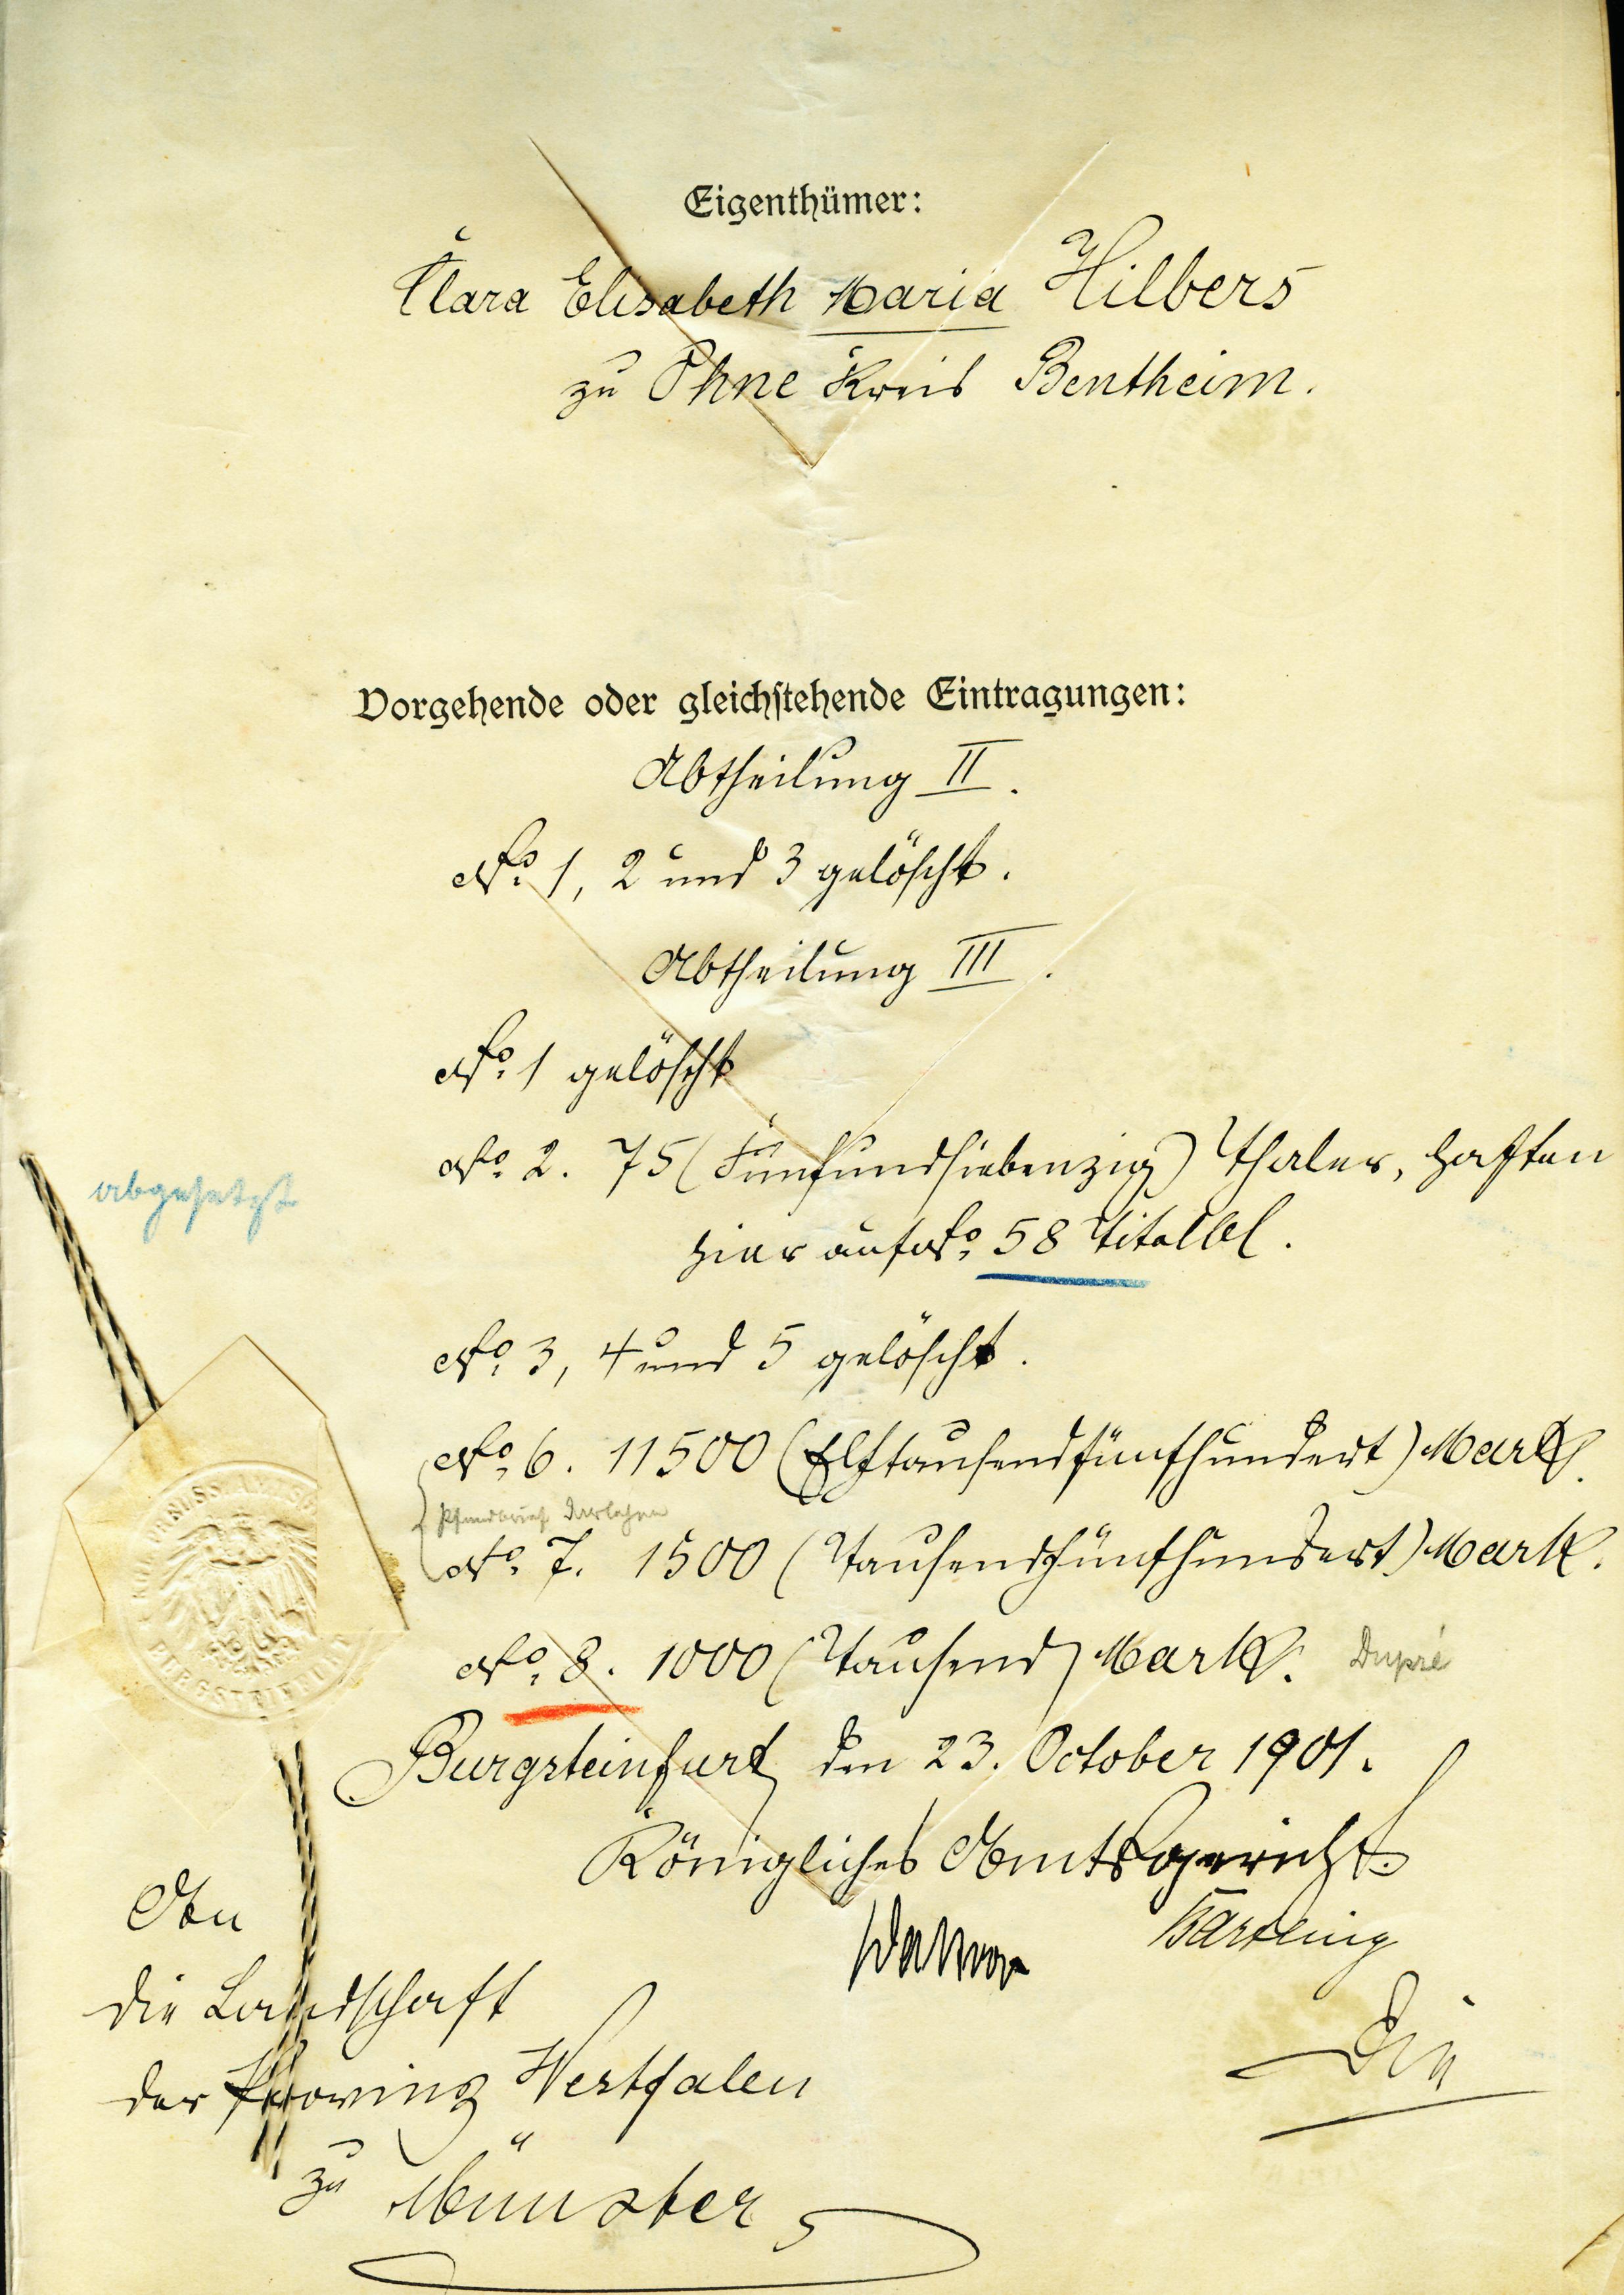 Eigenthümer:
Clara Elisabeth Maria Hilbers
zu Ohne Kreis Bentheim.
Vorgehende oder gleichstehende Eintragungen:
Abtheilung II.
No. 1, 2 und 3 gelöscht.
Abtheilung III.
No. 1 gelöscht
No. 2. 75 (Fünfundsiebenzig) Thaler, haften
hier auf No. 58 Titelbl.
abgesetzt
No. 3, 4 und 5 gelöscht.
No. 6. 11500 (Elftausendfünfhundert) Mark.
Pfandbrief Darlehen
No. 7. 1500 (Tausendfünfhundert) Mark.
No. 8. 1000 (Tausend) Mark. Dupré
BURGSTEINFURT
Burgsteinfurt, den 23. October 1901.
Königliches Amtsgericht.
Bartling
An
die Landschaft
der Provinz Westfalen
zu Münster
Die